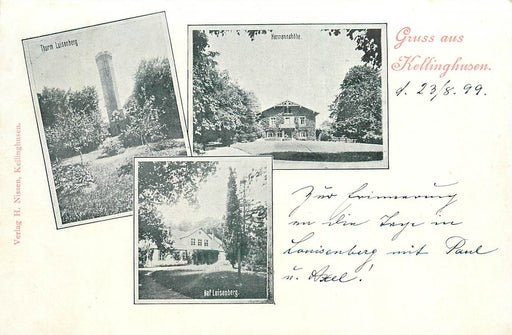 Thurm Luisenberg
Hermannshöhe.
Gruss aus
Kellinghusen.
d. 23/8. 99.
Verlag H. Nissen, Kellinghusen.
Zur Erinnerung
an die Tage in
Louisenberg mit Paul
u. Axel!
Hof Luisenberg.